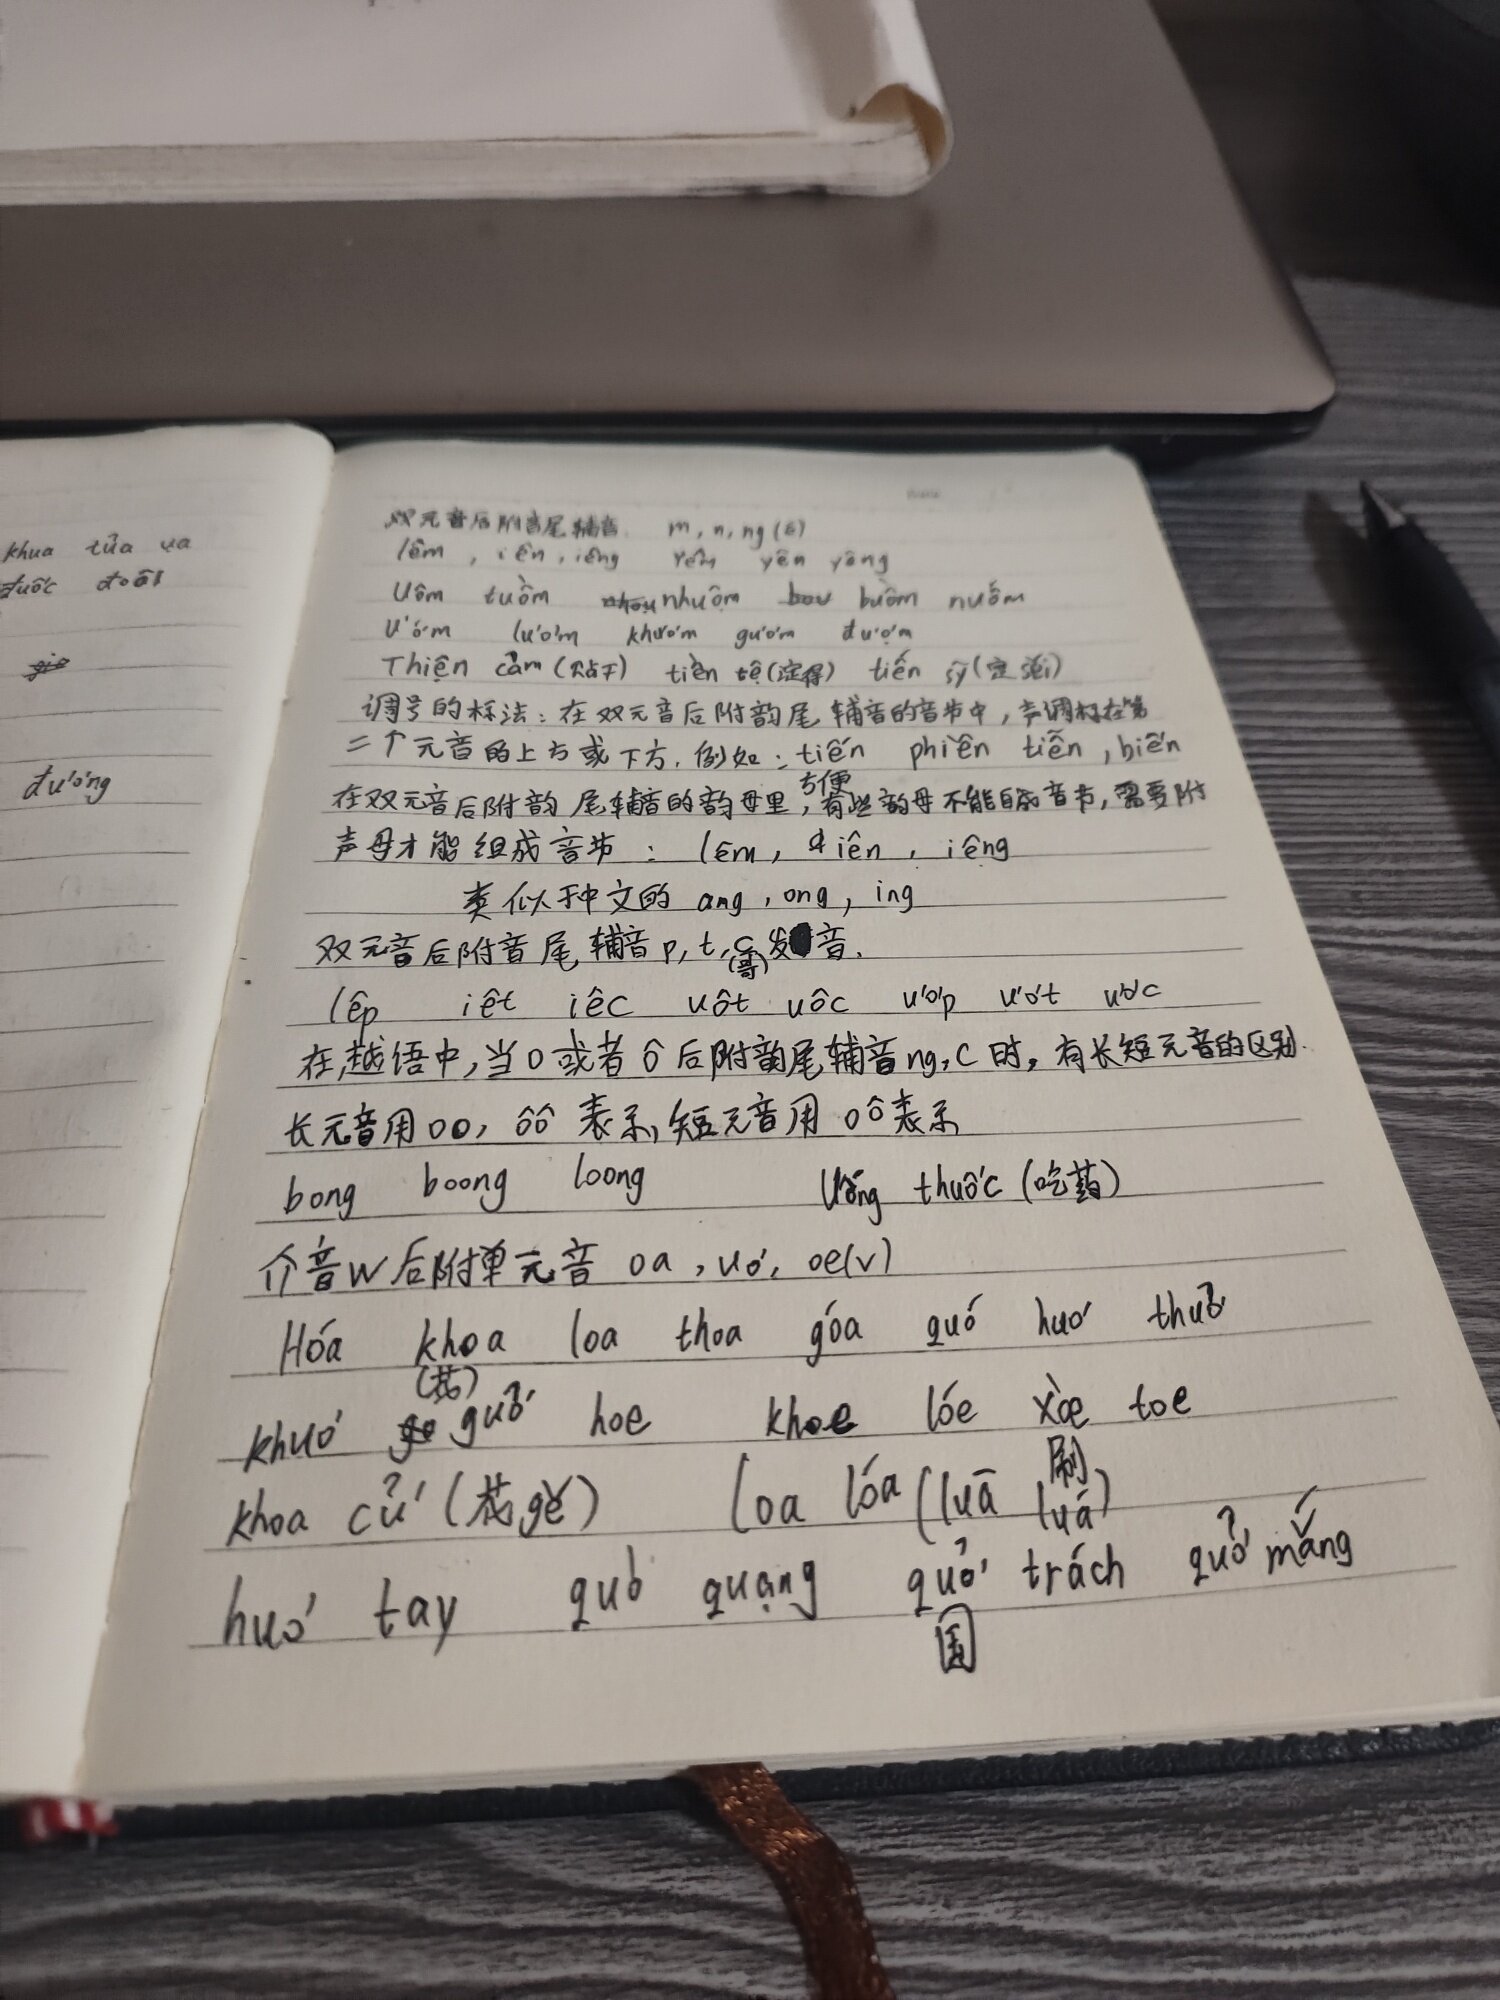 khua tủa ưa
đuốc đoôi
đương
双元音后附音尾辅音. m, n, ng (ê)
iêm, iên, iêng yêm yên yêng
Uôm tuồm nhuộm buồm nuốm
Ươm lươm khươm gươm đượm
Thiện cảm (贴干) tiền tệ (淀得) tiến sỹ (定)
调号的标法：在双元音后附韵尾辅音的音节中，声调标在第
二个元音的上方或下方. 例如：tiến phiên tiễn, biến
方便
在双元音后附韵尾辅音的韵母里，有些韵母不能自成音节，需要附
声母才能组成音节：iêm, iên, iêng
类似于中文的 ang, ong, ing
双元音后附音尾辅音 p, t, c 发音.
(哥)
iêp iêt iêc uôt uôc ươp ươt ươc
在越语中，当 o 或者 ô 后附韵尾辅音 ng, c 时，有长短元音的区别.
长元音用 oo, ôô 表示，短元音用 o ô 表示
bong boong loong Uống thuốc (吃药)
介音 w 后附单元音 oa, uơ, oe(v)
Hóa khoa loa thoa góa quớ huơ thuở
(花)
khuớ guở hoe khoe lóe xòe toe
khoa cử (花gě) loa lóa (luā luá)
刷
huớ tay quờ quạng quở trách quở mắng
国